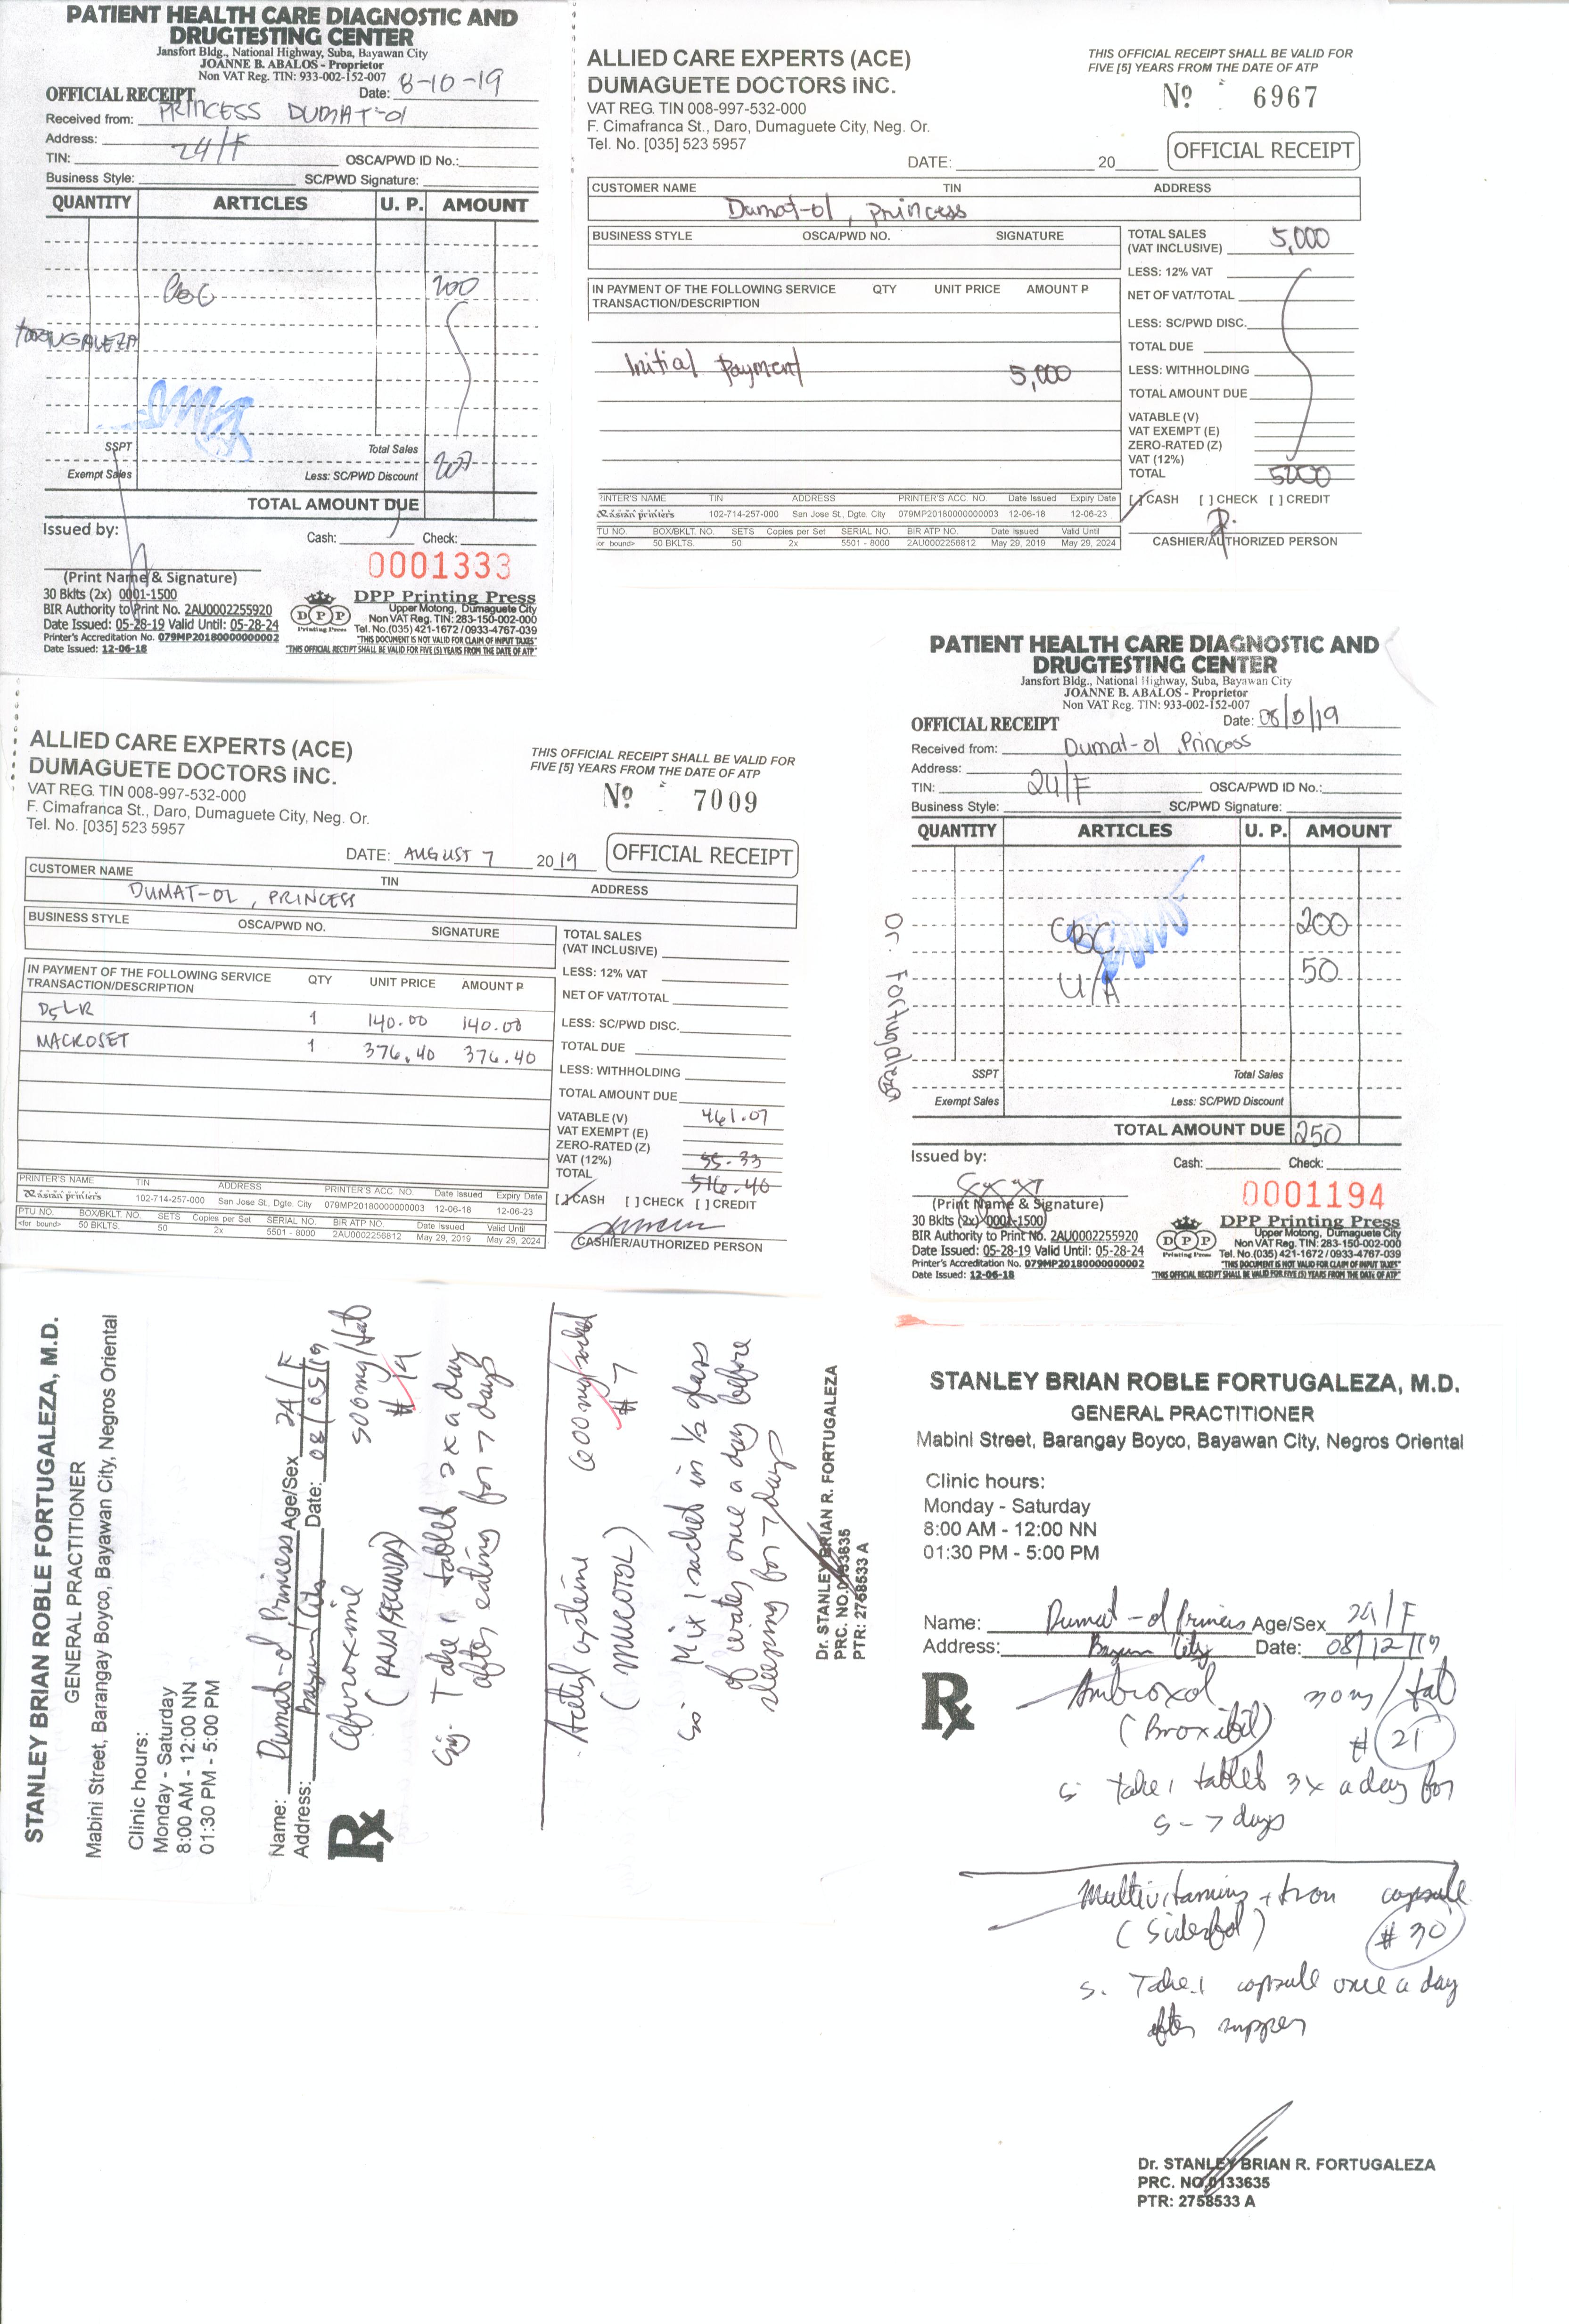 PATIENT HEALTH CARE DIAGNOSTIC AND
DRUGTESTING CENTER
Jansfort Bldg., National Highway, Suba, Bayawan City
JOANNE B. ABALOS - Proprietor
Non VAT Reg. TIN: 933-002-152-007
OFFICIAL RECEIPT Date: 8-10-19
Received from: PRINCESS DUMAT-Ol
Address:
24/F
TIN: OSCA/PWD ID No.:
Business Style: SC/PWD Signature:
QUANTITY ARTICLES U. P. AMOUNT
CBC 200
SSPT Total Sales
200
Exempt Sales Less: SC/PWD Discount
TOTAL AMOUNT DUE
Issued by:
Cash: Check:
0001333
(Print Name & Signature)
30 Bklts (2x) 0001-1500
BIR Authority to Print No. 2AU0002255920
Date Issued: 05-28-19 Valid Until: 05-28-24
Printer's Accreditation No. 079MP20180000000002
Date Issued: 12-06-18
DPP
Printing Press
DPP Printing Press
Upper Motong, Dumaguete City
Non VAT Reg. TIN: 283-150-002-000
Tel. No.(035) 421-1672 / 0933-4767-039
"THIS DOCUMENT IS NOT VALID FOR CLAIM OF INPUT TAXES"
"THIS OFFICIAL RECEIPT SHALL BE VALID FOR FIVE (5) YEARS FROM THE DATE OF ATP"
ALLIED CARE EXPERTS (ACE)
DUMAGUETE DOCTORS INC.
VAT REG. TIN 008-997-532-000
F. Cimafranca St., Daro, Dumaguete City, Neg. Or.
Tel. No. [035] 523 5957
THIS OFFICIAL RECEIPT SHALL BE VALID FOR
FIVE [5] YEARS FROM THE DATE OF ATP
Nº 6967
DATE: 20 OFFICIAL RECEIPT
CUSTOMER NAME TIN ADDRESS
Dumat-ol, Princess
BUSINESS STYLE OSCA/PWD NO. SIGNATURE
IN PAYMENT OF THE FOLLOWING SERVICE QTY UNIT PRICE AMOUNT P
TRANSACTION/DESCRIPTION
Initial payment 5,000
TOTAL SALES
(VAT INCLUSIVE) 5,000
LESS: 12% VAT
NET OF VAT/TOTAL
LESS: SC/PWD DISC.
TOTAL DUE
LESS: WITHHOLDING
TOTAL AMOUNT DUE
VATABLE (V)
VAT EXEMPT (E)
ZERO-RATED (Z)
VAT (12%)
TOTAL 5000
[ ] CASH [ ] CHECK [ ] CREDIT
CASHIER/AUTHORIZED PERSON
PRINTER'S NAME TIN ADDRESS PRINTER'S ACC. NO. Date Issued Expiry Date
asian printers 102-714-257-000 San Jose St., Dgte. City 079MP20180000000003 12-06-18 12-06-23
TU NO. BOX/BKLT. NO. SETS Copies per Set SERIAL NO. BIR ATP NO. Date Issued Valid Until
<or bound> 50 BKLTS. 50 2x 5501 - 8000 2AU0002256812 May 29, 2019 May 29, 2024
ALLIED CARE EXPERTS (ACE)
DUMAGUETE DOCTORS INC.
VAT REG. TIN 008-997-532-000
F. Cimafranca St., Daro, Dumaguete City, Neg. Or.
Tel. No. [035] 523 5957
THIS OFFICIAL RECEIPT SHALL BE VALID FOR
FIVE [5] YEARS FROM THE DATE OF ATP
Nº 7009
DATE: AUGUST 7 2019 OFFICIAL RECEIPT
CUSTOMER NAME TIN ADDRESS
DUMAT-OL, PRINCESS
BUSINESS STYLE OSCA/PWD NO. SIGNATURE
IN PAYMENT OF THE FOLLOWING SERVICE QTY UNIT PRICE AMOUNT P
TRANSACTION/DESCRIPTION
D5LR 1 140.00 140.00
MACROSET 1 376.40 376.40
TOTAL SALES
(VAT INCLUSIVE)
LESS: 12% VAT
NET OF VAT/TOTAL
LESS: SC/PWD DISC.
TOTAL DUE
LESS: WITHHOLDING
TOTAL AMOUNT DUE
VATABLE (V) 461.07
VAT EXEMPT (E)
ZERO-RATED (Z)
VAT (12%) 55.33
TOTAL 516.40
[ ] CASH [ ] CHECK [ ] CREDIT
CASHIER/AUTHORIZED PERSON
PRINTER'S NAME TIN ADDRESS PRINTER'S ACC. NO. Date Issued Expiry Date
asian printers 102-714-257-000 San Jose St., Dgte. City 079MP20180000000003 12-06-18 12-06-23
PTU NO. BOX/BKLT. NO. SETS Copies per Set SERIAL NO. BIR ATP NO. Date Issued Valid Until
<for bound> 50 BKLTS. 50 2x 5501 - 8000 2AU0002256812 May 29, 2019 May 29, 2024
PATIENT HEALTH CARE DIAGNOSTIC AND
DRUGTESTING CENTER
Jansfort Bldg., National Highway, Suba, Bayawan City
JOANNE B. ABALOS - Proprietor
Non VAT Reg. TIN: 933-002-152-007
OFFICIAL RECEIPT Date:
Received from: Dumat-ol, Princess
Address:
24/F
TIN: OSCA/PWD ID No.:
Business Style: SC/PWD Signature:
QUANTITY ARTICLES U. P. AMOUNT
CBC 200
U/A 50
Dr. Fortugaleza
SSPT Total Sales
Exempt Sales Less: SC/PWD Discount
TOTAL AMOUNT DUE 250
Issued by:
Cash: Check:
0001194
(Print Name & Signature)
30 Bklts (2x) 0001-1500
BIR Authority to Print No. 2AU0002255920
Date Issued: 05-28-19 Valid Until: 05-28-24
Printer's Accreditation No. 079MP20180000000002
Date Issued: 12-06-18
DPP
Printing Press
DPP Printing Press
Upper Motong, Dumaguete City
Non VAT Reg. TIN: 283-150-002-000
Tel. No.(035) 421-1672 / 0933-4767-039
"THIS DOCUMENT IS NOT VALID FOR CLAIM OF INPUT TAXES"
"THIS OFFICIAL RECEIPT SHALL BE VALID FOR FIVE (5) YEARS FROM THE DATE OF ATP"
STANLEY BRIAN ROBLE FORTUGALEZA, M.D.
GENERAL PRACTITIONER
Mabini Street, Barangay Boyco, Bayawan City, Negros Oriental
Clinic hours:
Monday - Saturday
8:00 AM - 12:00 NN
01:30 PM - 5:00 PM
Name: Dumat-ol Princess Age/Sex 24/F
Address: Bayawan City Date: 08/05/19
Rx
Cefuroxime 500mg/tab
#14
Sig. Take 1 tablet 2x a day
after eating for 7 days
Acetylcysteine 600mg/sachet
(MUCOTOL) #7
S: Mix 1 sachet in 1/2 glass
of water once a day before
sleeping for 7 days
Dr. STANLEY BRIAN R. FORTUGALEZA
PRC. NO.0133635
PTR: 2758533 A
STANLEY BRIAN ROBLE FORTUGALEZA, M.D.
GENERAL PRACTITIONER
Mabini Street, Barangay Boyco, Bayawan City, Negros Oriental
Clinic hours:
Monday - Saturday
8:00 AM - 12:00 NN
01:30 PM - 5:00 PM
Name: Dumat-ol Princess Age/Sex 24/F
Address: City Date: 08/12/19
Rx
Ambroxol 30mg/tab
(Broxibil) #21
S: take 1 tablet 3x a day for
5-7 days
Multivitamins + Iron capsule
#30
S. Take 1 capsule once a day
after supper
Dr. STANLEY BRIAN R. FORTUGALEZA
PRC. NO.0133635
PTR: 2758533 A